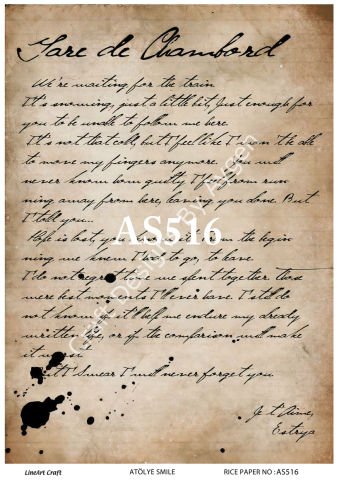 Gare de Chambord
We're waiting for the train
It's snowing, just a little bit, just enough for
you to be unable to follow me here.
It's not that cold, but I feel like I won't be able
to move my fingers anymore. You will
never know how guilty I feel from run
ning away from here, leaving you alone. But
I told you...
AS516
Hope is lost, you know it from the begin
ning we knew I had to go, to leave.
I do not regret time we spent together. Those
were best moments I'll ever have. I still do
not know if it'll help me endure my already
written life, or if the comparison will make
it worst
But I swear I will never forget you.
Je t'aime,
Estrya
Craft Designs By Aysen
LineArt Craft
ATÖLYE SMILE
RICE PAPER NO : AS516